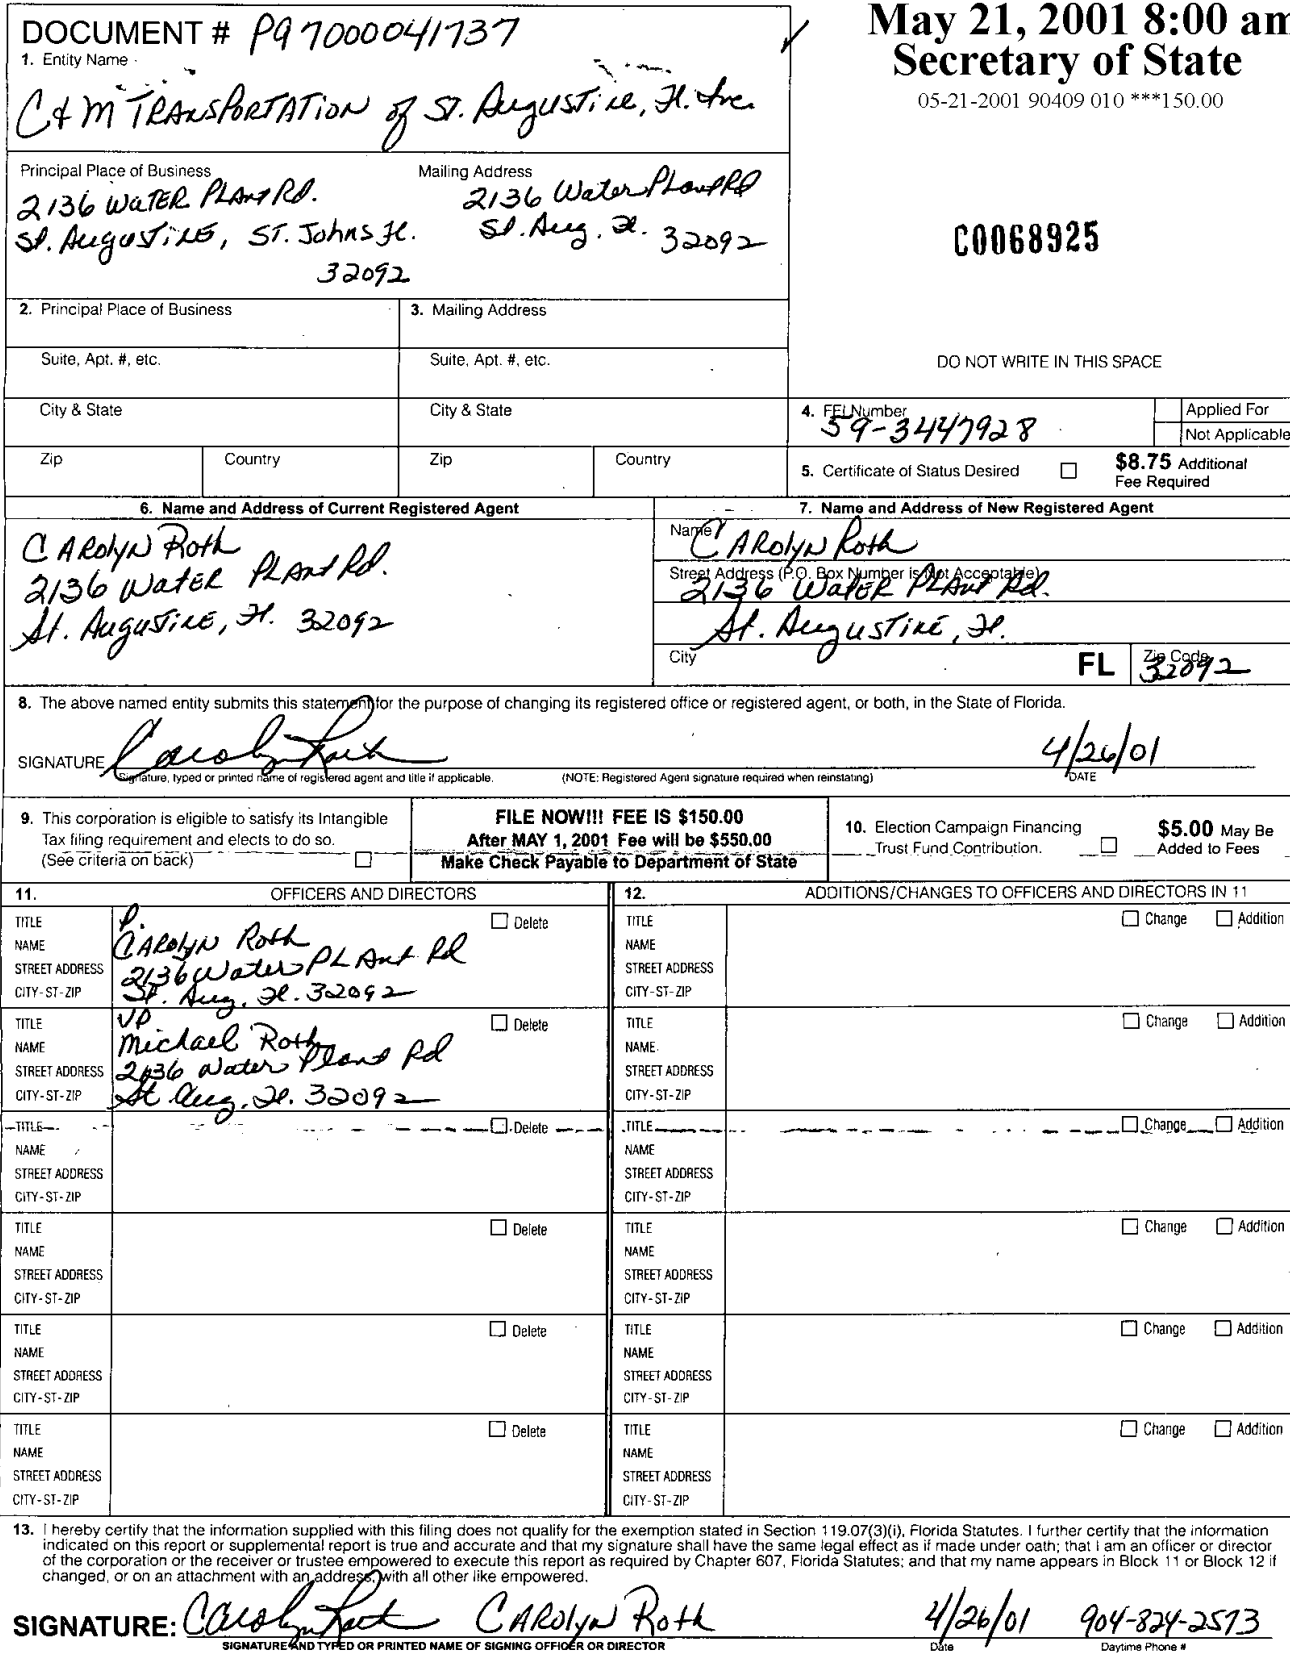 DOCUMENT # P97000041737
May 21, 2001 8:00 am
Secretary of State
05-21-2001 90409 010 ***150.00
1. Entity Name
C & M TRANSPORTATION of St. Augustine, Fl. Inc.
Principal Place of Business
2136 WATER PLANT Rd.
St. Augustine, St. Johns Fl.
32092
Mailing Address
2136 Water Plant Rd
St. Aug. Fl. 32092
C0068925
2. Principal Place of Business
3. Mailing Address
Suite, Apt. #, etc.
Suite, Apt. #, etc.
DO NOT WRITE IN THIS SPACE
City & State
City & State
4. FEI Number
59-3447928
Applied For
Not Applicable
Zip
Country
Zip
Country
5. Certificate of Status Desired
$8.75 Additional
Fee Required
6. Name and Address of Current Registered Agent
CAROLYN Roth
2136 WATER PLANT Rd.
St. Augustine, Fl. 32092
7. Name and Address of New Registered Agent
Name
CAROLYN Roth
Street Address (P.O. Box Number is Not Acceptable)
2136 WATER PLANT Rd.
St. Augustine, Fl.
City
FL
Zip Code
32092
8. The above named entity submits this statement for the purpose of changing its registered office or registered agent, or both, in the State of Florida.
SIGNATURE Carolyn Roth 4/26/01
Signature, typed or printed name of registered agent and title if applicable. (NOTE: Registered Agent signature required when reinstating) DATE
9. This corporation is eligible to satisfy its Intangible
Tax filing requirement and elects to do so.
(See criteria on back)
FILE NOW!!! FEE IS $150.00
After MAY 1, 2001 Fee will be $550.00
Make Check Payable to Department of State
10. Election Campaign Financing
Trust Fund Contribution.
$5.00 May Be
Added to Fees
11. OFFICERS AND DIRECTORS
12. ADDITIONS/CHANGES TO OFFICERS AND DIRECTORS IN 11
TITLE P. Delete
NAME CAROLYN Roth
STREET ADDRESS 2136 Water PLANT Rd
CITY-ST-ZIP St. Aug. Fl. 32092
TITLE Change Addition
NAME
STREET ADDRESS
CITY-ST-ZIP
TITLE VP Delete
NAME Michael Roth
STREET ADDRESS 2136 Water Plant Rd
CITY-ST-ZIP St. Aug. Fl. 32092
TITLE Change Addition
NAME
STREET ADDRESS
CITY-ST-ZIP
TITLE Delete
NAME
STREET ADDRESS
CITY-ST-ZIP
TITLE Change Addition
NAME
STREET ADDRESS
CITY-ST-ZIP
TITLE Delete
NAME
STREET ADDRESS
CITY-ST-ZIP
TITLE Change Addition
NAME
STREET ADDRESS
CITY-ST-ZIP
TITLE Delete
NAME
STREET ADDRESS
CITY-ST-ZIP
TITLE Change Addition
NAME
STREET ADDRESS
CITY-ST-ZIP
TITLE Delete
NAME
STREET ADDRESS
CITY-ST-ZIP
TITLE Change Addition
NAME
STREET ADDRESS
CITY-ST-ZIP
13. I hereby certify that the information supplied with this filing does not qualify for the exemption stated in Section 119.07(3)(i), Florida Statutes. I further certify that the information
indicated on this report or supplemental report is true and accurate and that my signature shall have the same legal effect as if made under oath; that I am an officer or director
of the corporation or the receiver or trustee empowered to execute this report as required by Chapter 607, Florida Statutes; and that my name appears in Block 11 or Block 12 if
changed, or on an attachment with an address, with all other like empowered.
SIGNATURE: Carolyn Roth CAROLYN Roth 4/26/01 904-824-2573
SIGNATURE AND TYPED OR PRINTED NAME OF SIGNING OFFICER OR DIRECTOR Date Daytime Phone #